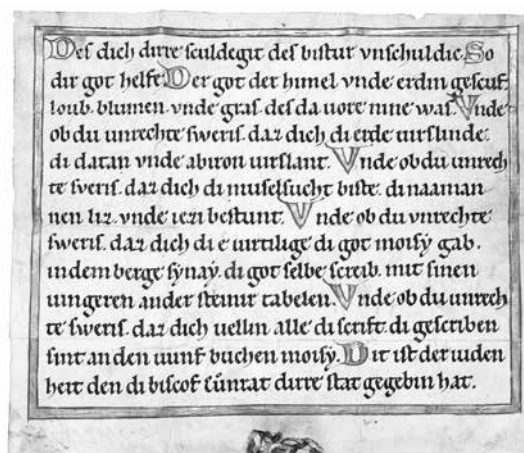 Des dich dirre sculdegit des bistur vnschuldic. So
dir got helfe. Der got der himel vnde erdin gescuf.
loub. blumen. vnde gras. des da uore nine was. Vnde
ob du unrechte sweris. daz dich di erde uirslinde.
di datan vnde abiron uirslant. Vnde ob du unrech
te sveris. daz dich di muselsucht biste. di naaman
nen liz. vnde iezi bestunt. Vnde ob du vnrechte
sweris. daz dich di e uirtilige di got moisy gab.
indem berge synay. di got selbe screib. mit sinen
uingeren ander steinir tabelen. Vnde ob du unrech
te sweris. daz dich uellin alle di scrift. di gescriben
sint an den uunf buchen moisy. Dit ist der iuden
heit den di biscof cůnrat dirre stat gegebin hat.